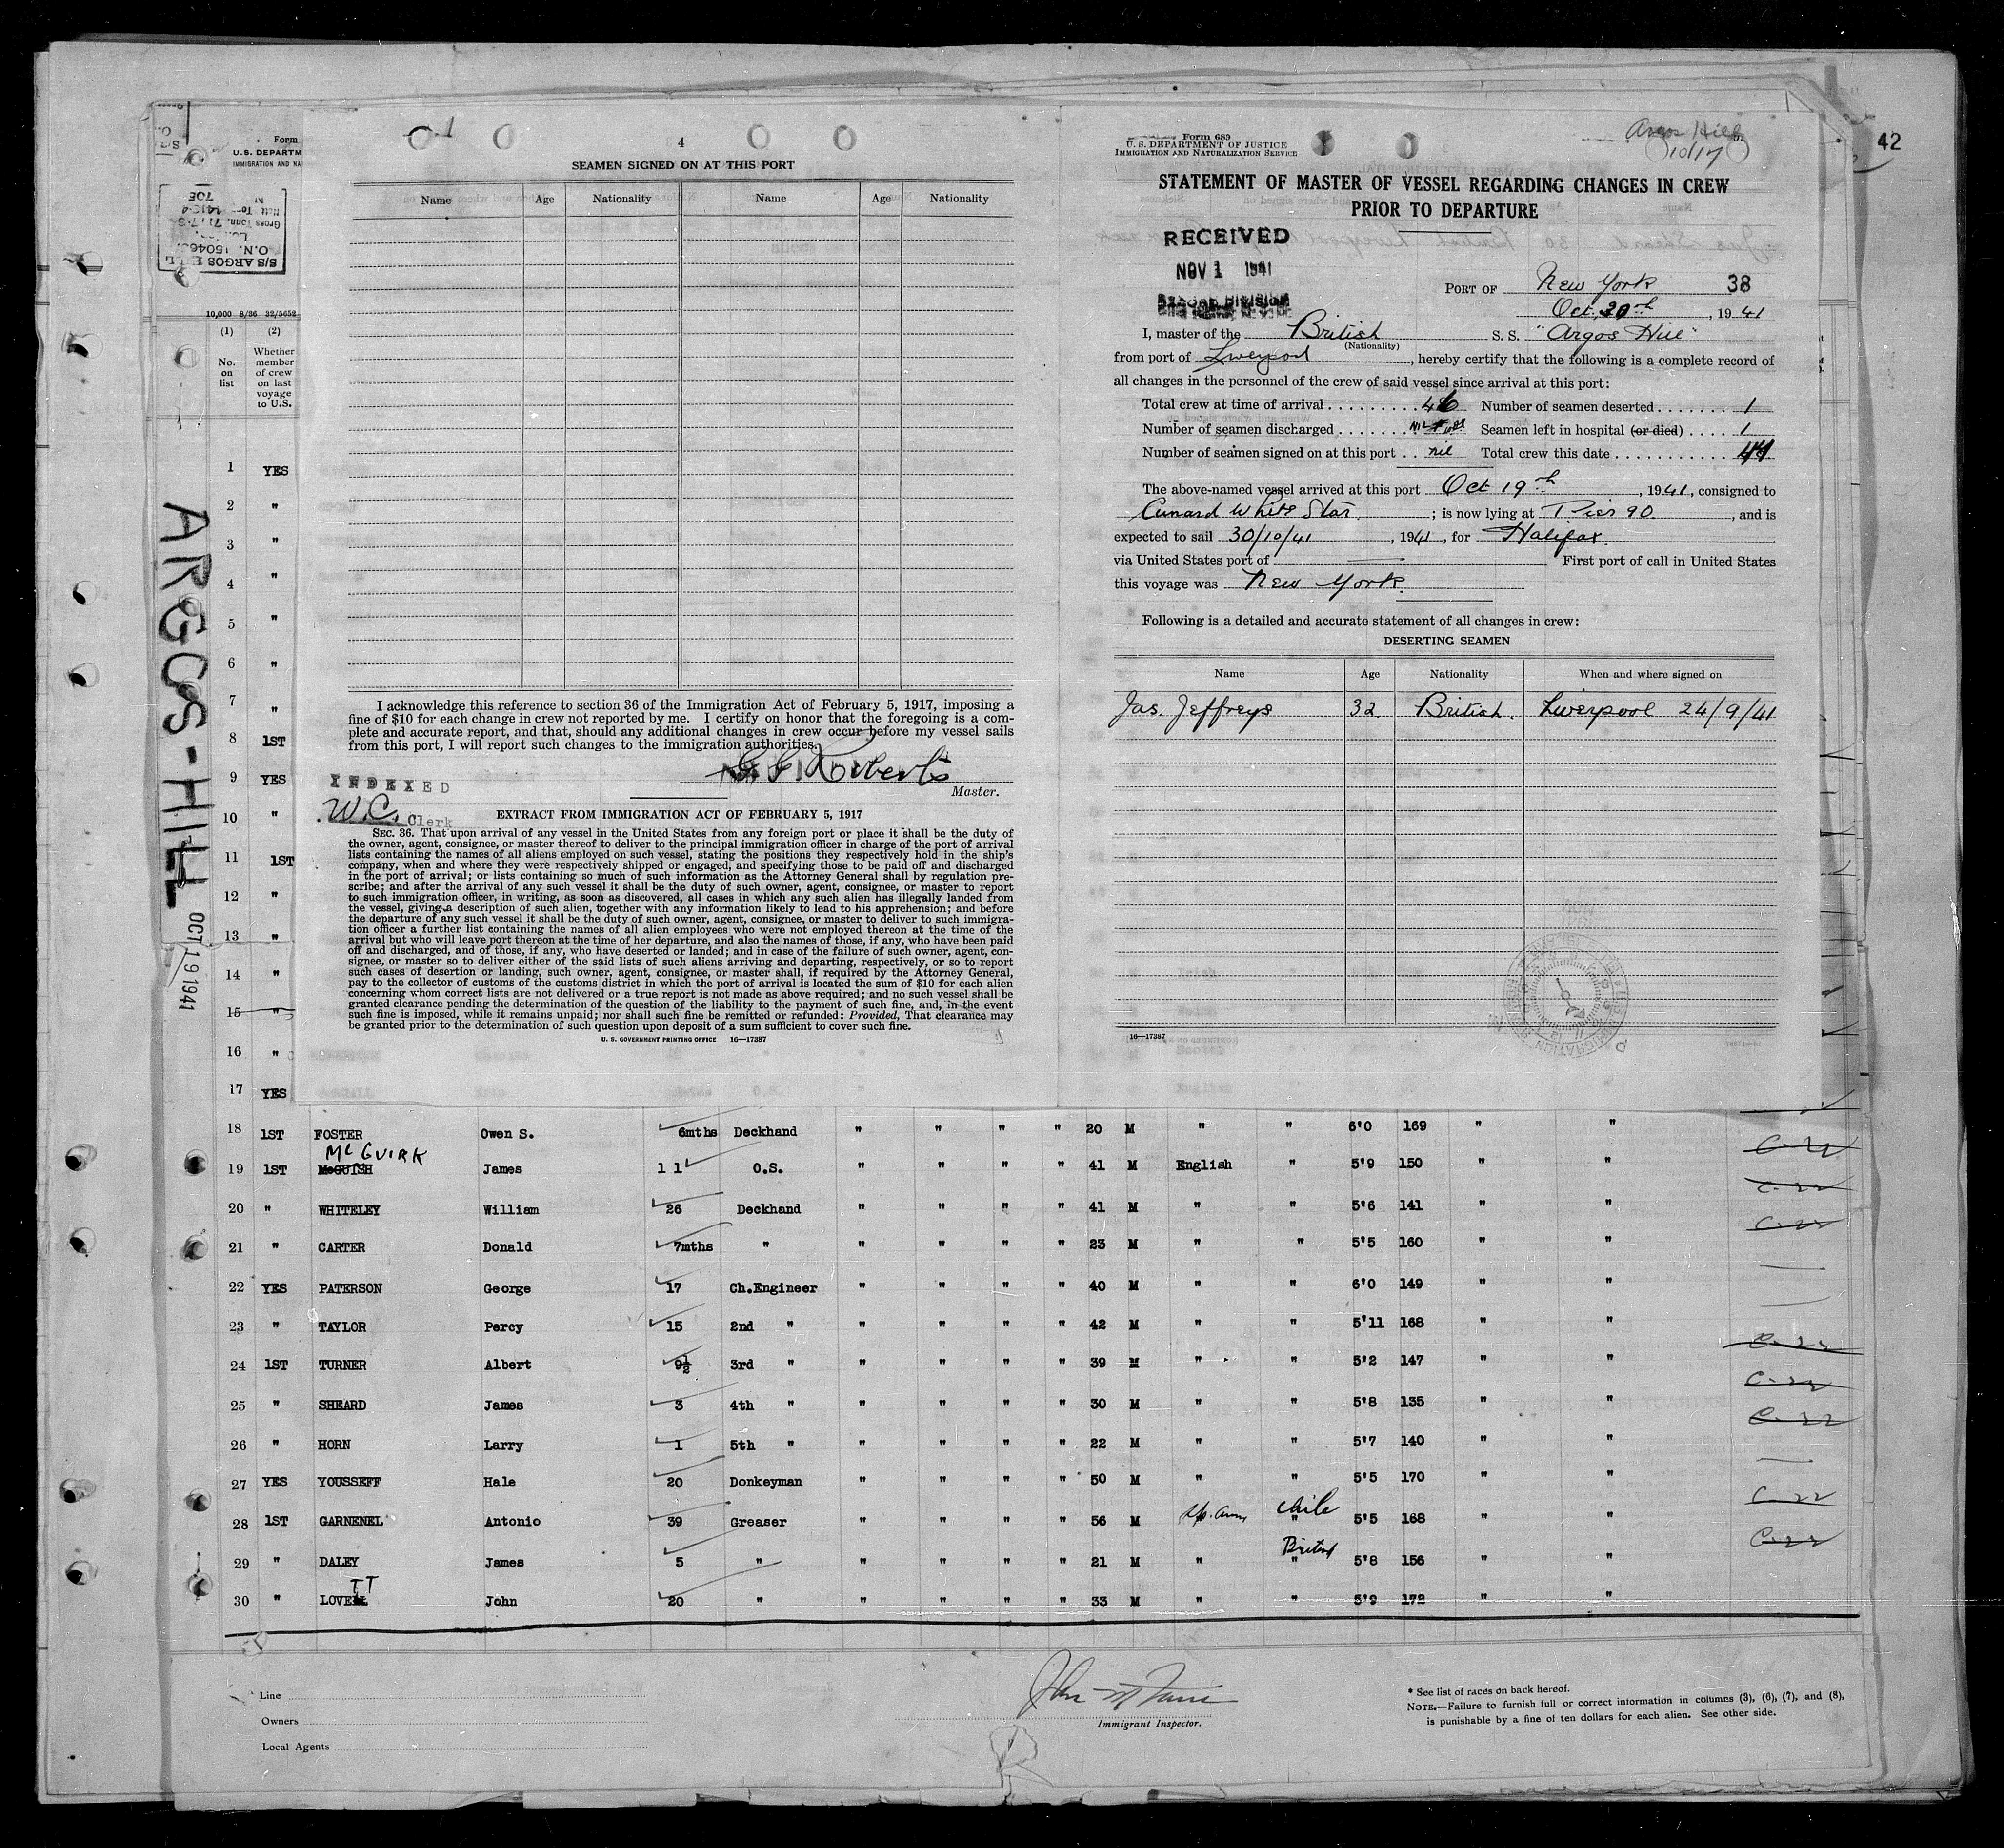 42
Form
U.S. DEPARTM
IMMIGRATION AND NA
S/S ARGOS
O.N.
10,000 8/36 32/5652
(1) (2)
No. on list
Whether member of crew on last voyage to U.S.
ARGOS-HILL
OCT 19 1941
1 YES
2 "
3 "
4 "
5 "
6 "
7 "
8 1ST
9 YES
10 "
11 1ST
12 "
13 "
14 "
15 "
16 "
17 YES
4
SEAMEN SIGNED ON AT THIS PORT
Name Age Nationality Name Age Nationality
I acknowledge this reference to section 36 of the Immigration Act of February 5, 1917, imposing a
fine of $10 for each change in crew not reported by me. I certify on honor that the foregoing is a com-
plete and accurate report, and that, should any additional changes in crew occur before my vessel sails
from this port, I will report such changes to the immigration authorities.
Roberts
Master.
INDEXED
W.C. Clerk
EXTRACT FROM IMMIGRATION ACT OF FEBRUARY 5, 1917
SEC. 36. That upon arrival of any vessel in the United States from any foreign port or place it shall be the duty of
the owner, agent, consignee, or master thereof to deliver to the principal immigration officer in charge of the port of arrival
lists containing the names of all aliens employed on such vessel, stating the positions they respectively hold in the ship's
company, when and where they were respectively shipped or engaged, and specifying those to be paid off and discharged
in the port of arrival; or lists containing so much of such information as the Attorney General shall by regulation pre-
scribe; and after the arrival of any such vessel it shall be the duty of such owner, agent, consignee, or master to report
to such immigration officer, in writing, as soon as discovered, all cases in which any such alien has illegally landed from
the vessel, giving a description of such alien, together with any information likely to lead to his apprehension; and before
the departure of any such vessel it shall be the duty of such owner, agent, consignee, or master to deliver to such immigra-
tion officer a further list containing the names of all alien employees who were not employed thereon at the time of the
arrival but who will leave port thereon at the time of her departure, and also the names of those, if any, who have been paid
off and discharged, and of those, if any, who have deserted or landed; and in case of the failure of such owner, agent, con-
signee, or master so to deliver either of the said lists of such aliens arriving and departing, respectively, or so to report
such cases of desertion or landing, such owner, agent, consignee, or master shall, if required by the Attorney General,
pay to the collector of customs of the customs district in which the port of arrival is located the sum of $10 for each alien
concerning whom correct lists are not delivered or a true report is not made as above required; and no such vessel shall be
granted clearance pending the determination of the question of the liability to the payment of such fine, and, in the event
such fine is imposed, while it remains unpaid; nor shall such fine be remitted or refunded: Provided, That clearance may
be granted prior to the determination of such question upon deposit of a sum sufficient to cover such fine.
U. S. GOVERNMENT PRINTING OFFICE 16—17387
Form 689
U. S. DEPARTMENT OF JUSTICE
IMMIGRATION AND NATURALIZATION SERVICE
Argos Hill
10/17
STATEMENT OF MASTER OF VESSEL REGARDING CHANGES IN CREW
PRIOR TO DEPARTURE
RECEIVED
NOV 1 1941
RECORD DIVISION
PORT OF New York 38
Oct 30th, 1941
I, master of the British S. S. "Argos Hill"
(Nationality)
from port of Liverpool, hereby certify that the following is a complete record of
all changes in the personnel of the crew of said vessel since arrival at this port:
Total crew at time of arrival 46 Number of seamen deserted 1
Number of seamen discharged NIL Seamen left in hospital (or died) 1
Number of seamen signed on at this port nil Total crew this date 44
The above-named vessel arrived at this port Oct 19th, 1941, consigned to
Cunard White Star; is now lying at Pier 90, and is
expected to sail 30/10/41, 1941, for Halifax
via United States port of First port of call in United States
this voyage was New York.
Following is a detailed and accurate statement of all changes in crew:
DESERTING SEAMEN
Name Age Nationality When and where signed on
Jas. Jeffreys 32. British. Liverpool 24/9/41
16—17387
18 1ST FOSTER Owen S. 6mths Deckhand " " " " 20 M " " 6'0 169 " "
McGUIRK
19 1ST McGUISH James 11 O.S. " " " " 41 M English " 5'9 150 " "
20 " WHITELEY William 26 Deckhand " " " " 41 M " " 5'6 141 " "
21 " CARTER Donald 7mths " " " " " 23 M " " 5'5 160 " "
22 YES PATERSON George 17 Ch.Engineer " " " " 40 M " " 6'0 149 " "
23 " TAYLOR Percy 15 2nd " " " " " 42 M " " 5'11 168 " "
24 1ST TURNER Albert 9½ 3rd " " " " " 39 M " " 5'2 147 " "
25 " SHEARD James 3 4th " " " " " 30 M " " 5'8 135 " "
26 " HORN Larry 1 5th " " " " " 22 M " " 5'7 140 " "
27 YES YOUSSEFF Hale 20 Donkeyman " " " " 50 M " " 5'5 170 " "
28 1ST GARNENEL Antonio 39 Greaser " " " " 56 M Sp. Am Chile " 5'5 168 " "
29 " DALEY James 5 " " " " " 21 M " British " 5'8 156 " "
TT
30 " LOVELL John 20 " " " " " 33 M " " 5'9 172 " "
Line
Owners
Local Agents
Immigrant Inspector.
* See list of races on back hereof.
NOTE.—Failure to furnish full or correct information in columns (3), (6), (7), and (8),
is punishable by a fine of ten dollars for each alien. See other side.